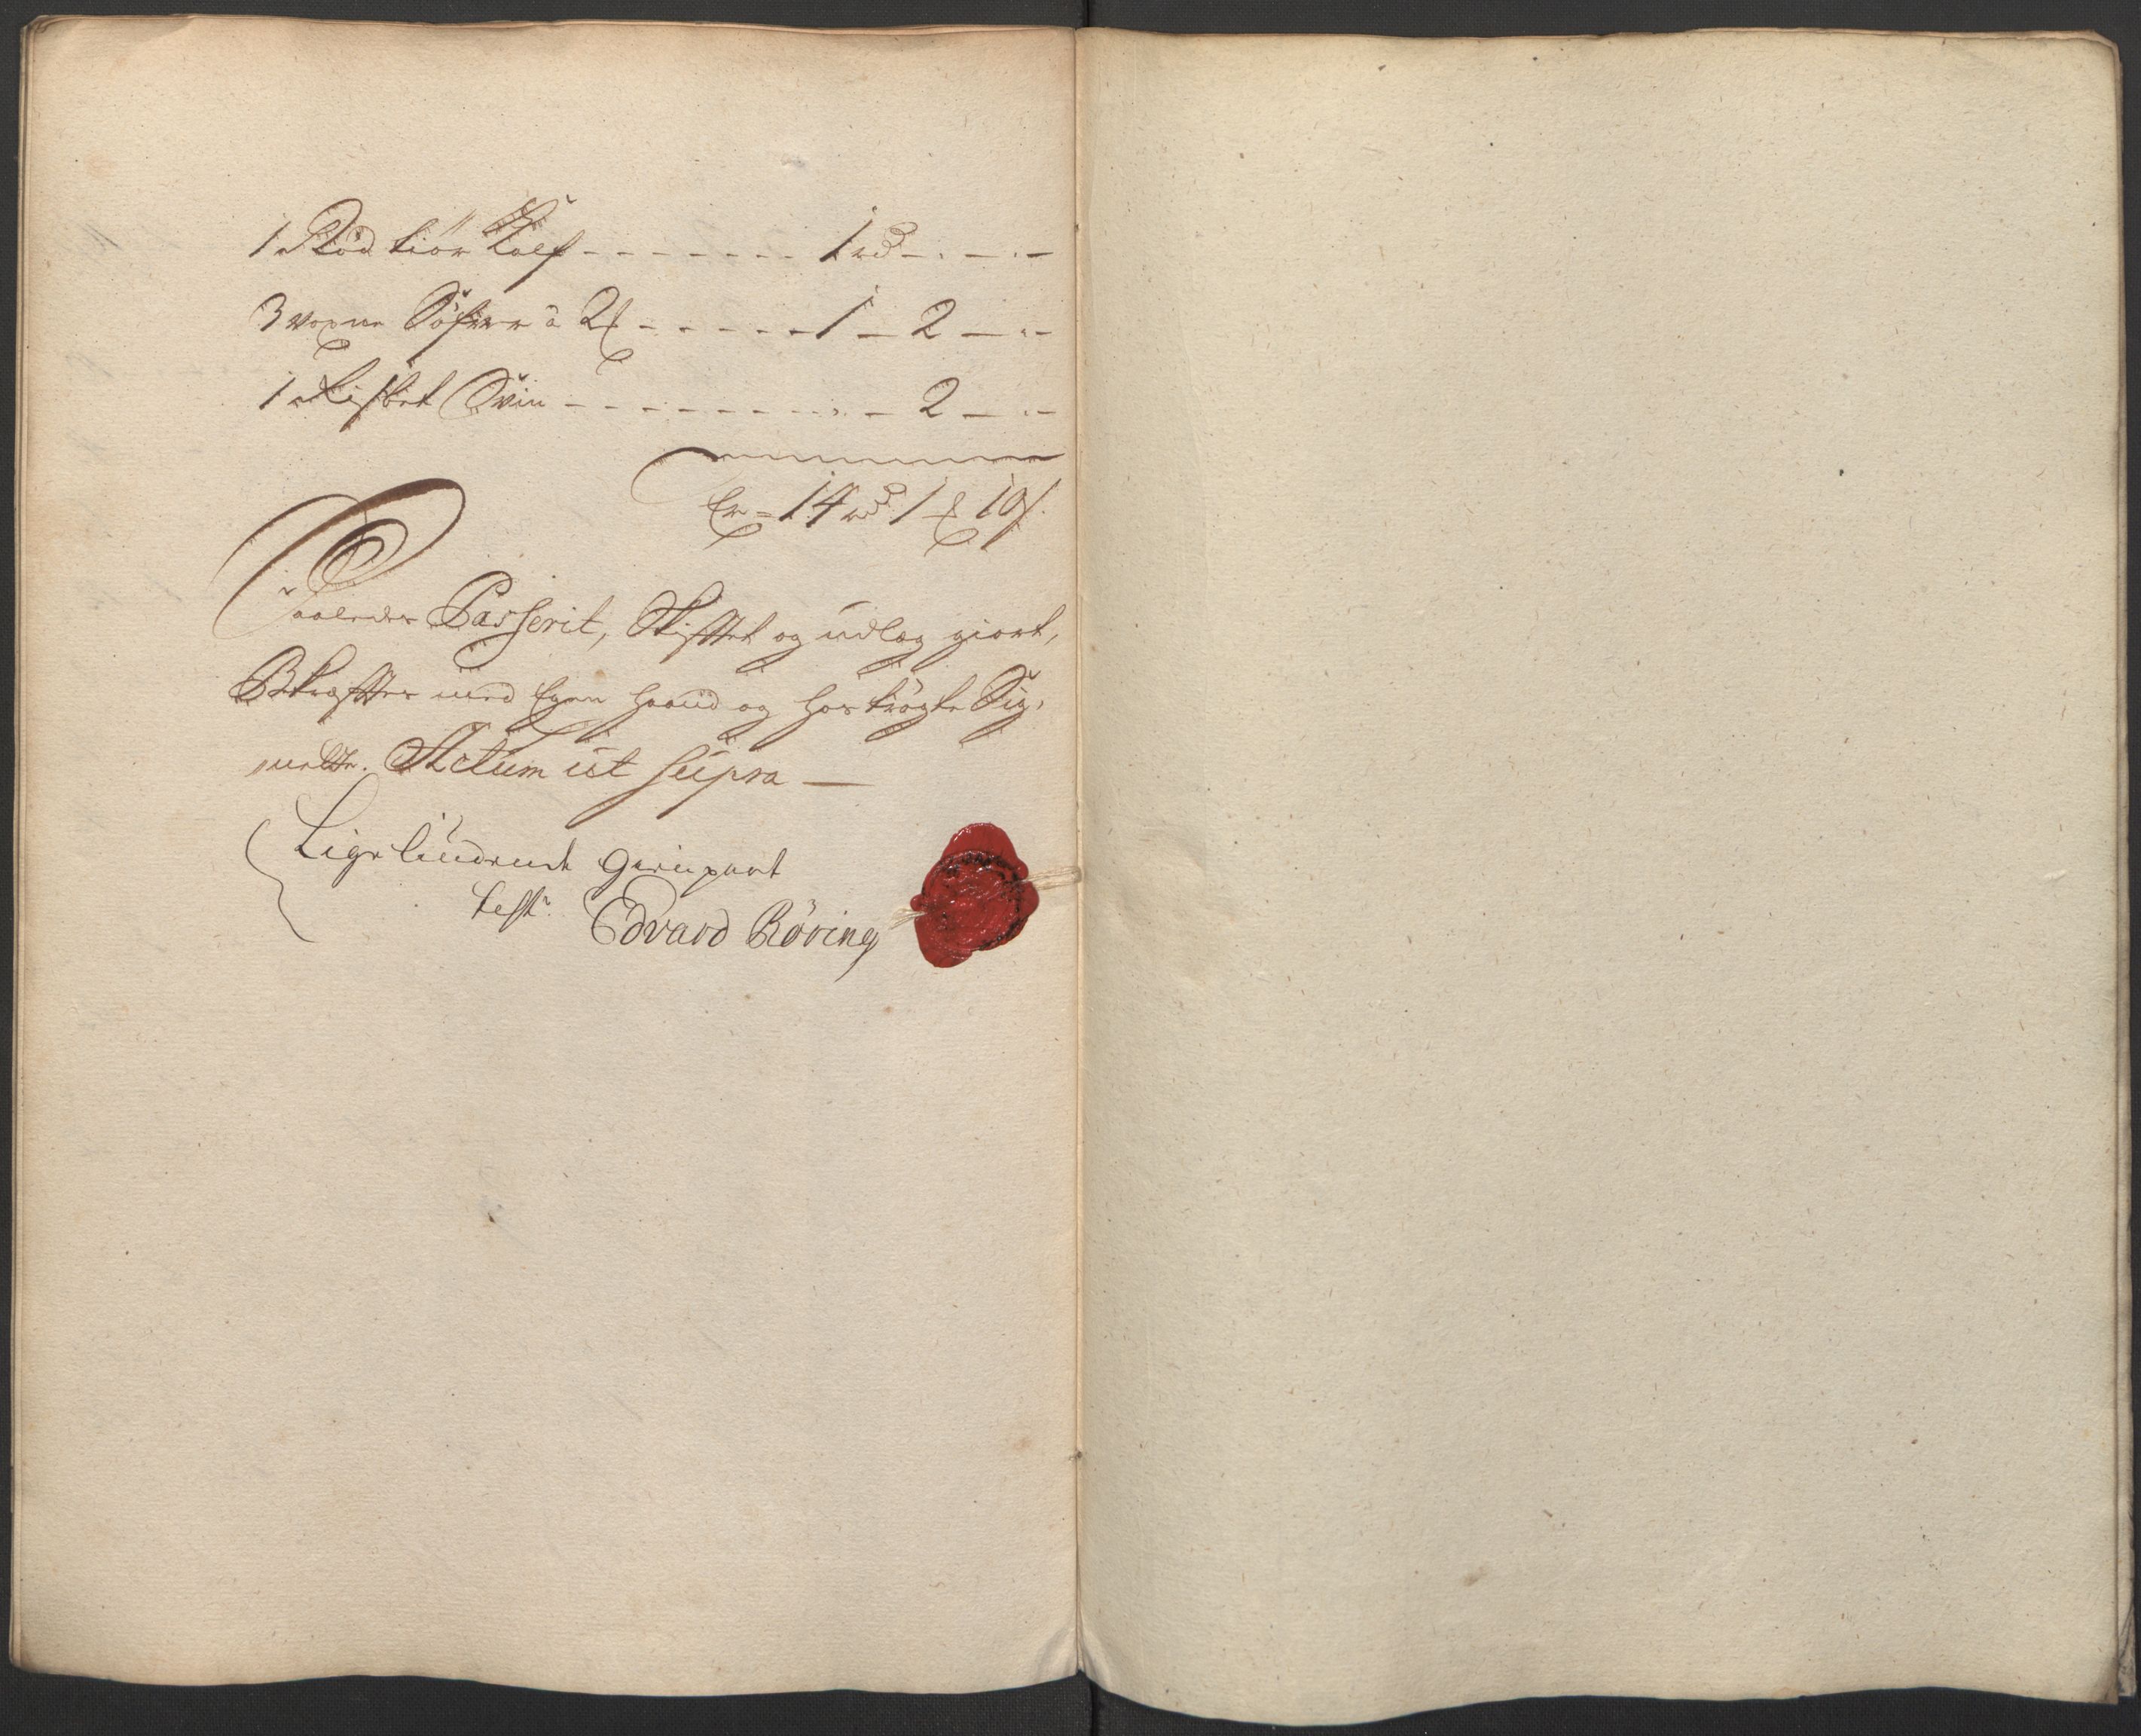 1 Rød tiør Kalf - - - - - - - - 1 rd - . - . -
3 voxne Søfver à 2 ₰ - - - - - - 1 - 2 - . -
1 Lidet Svin - - - - - - - - - - - 2 - . -
Er = 14 rd 1 ₰ 10 s.
Saaledes Passerit, Skifftet og udlæg giort,
Bekræfftes med Egen haand og hoströgte Sig-
nette. Actum ut supra —
Ligelüdende Genpart
test. Edvard Röring